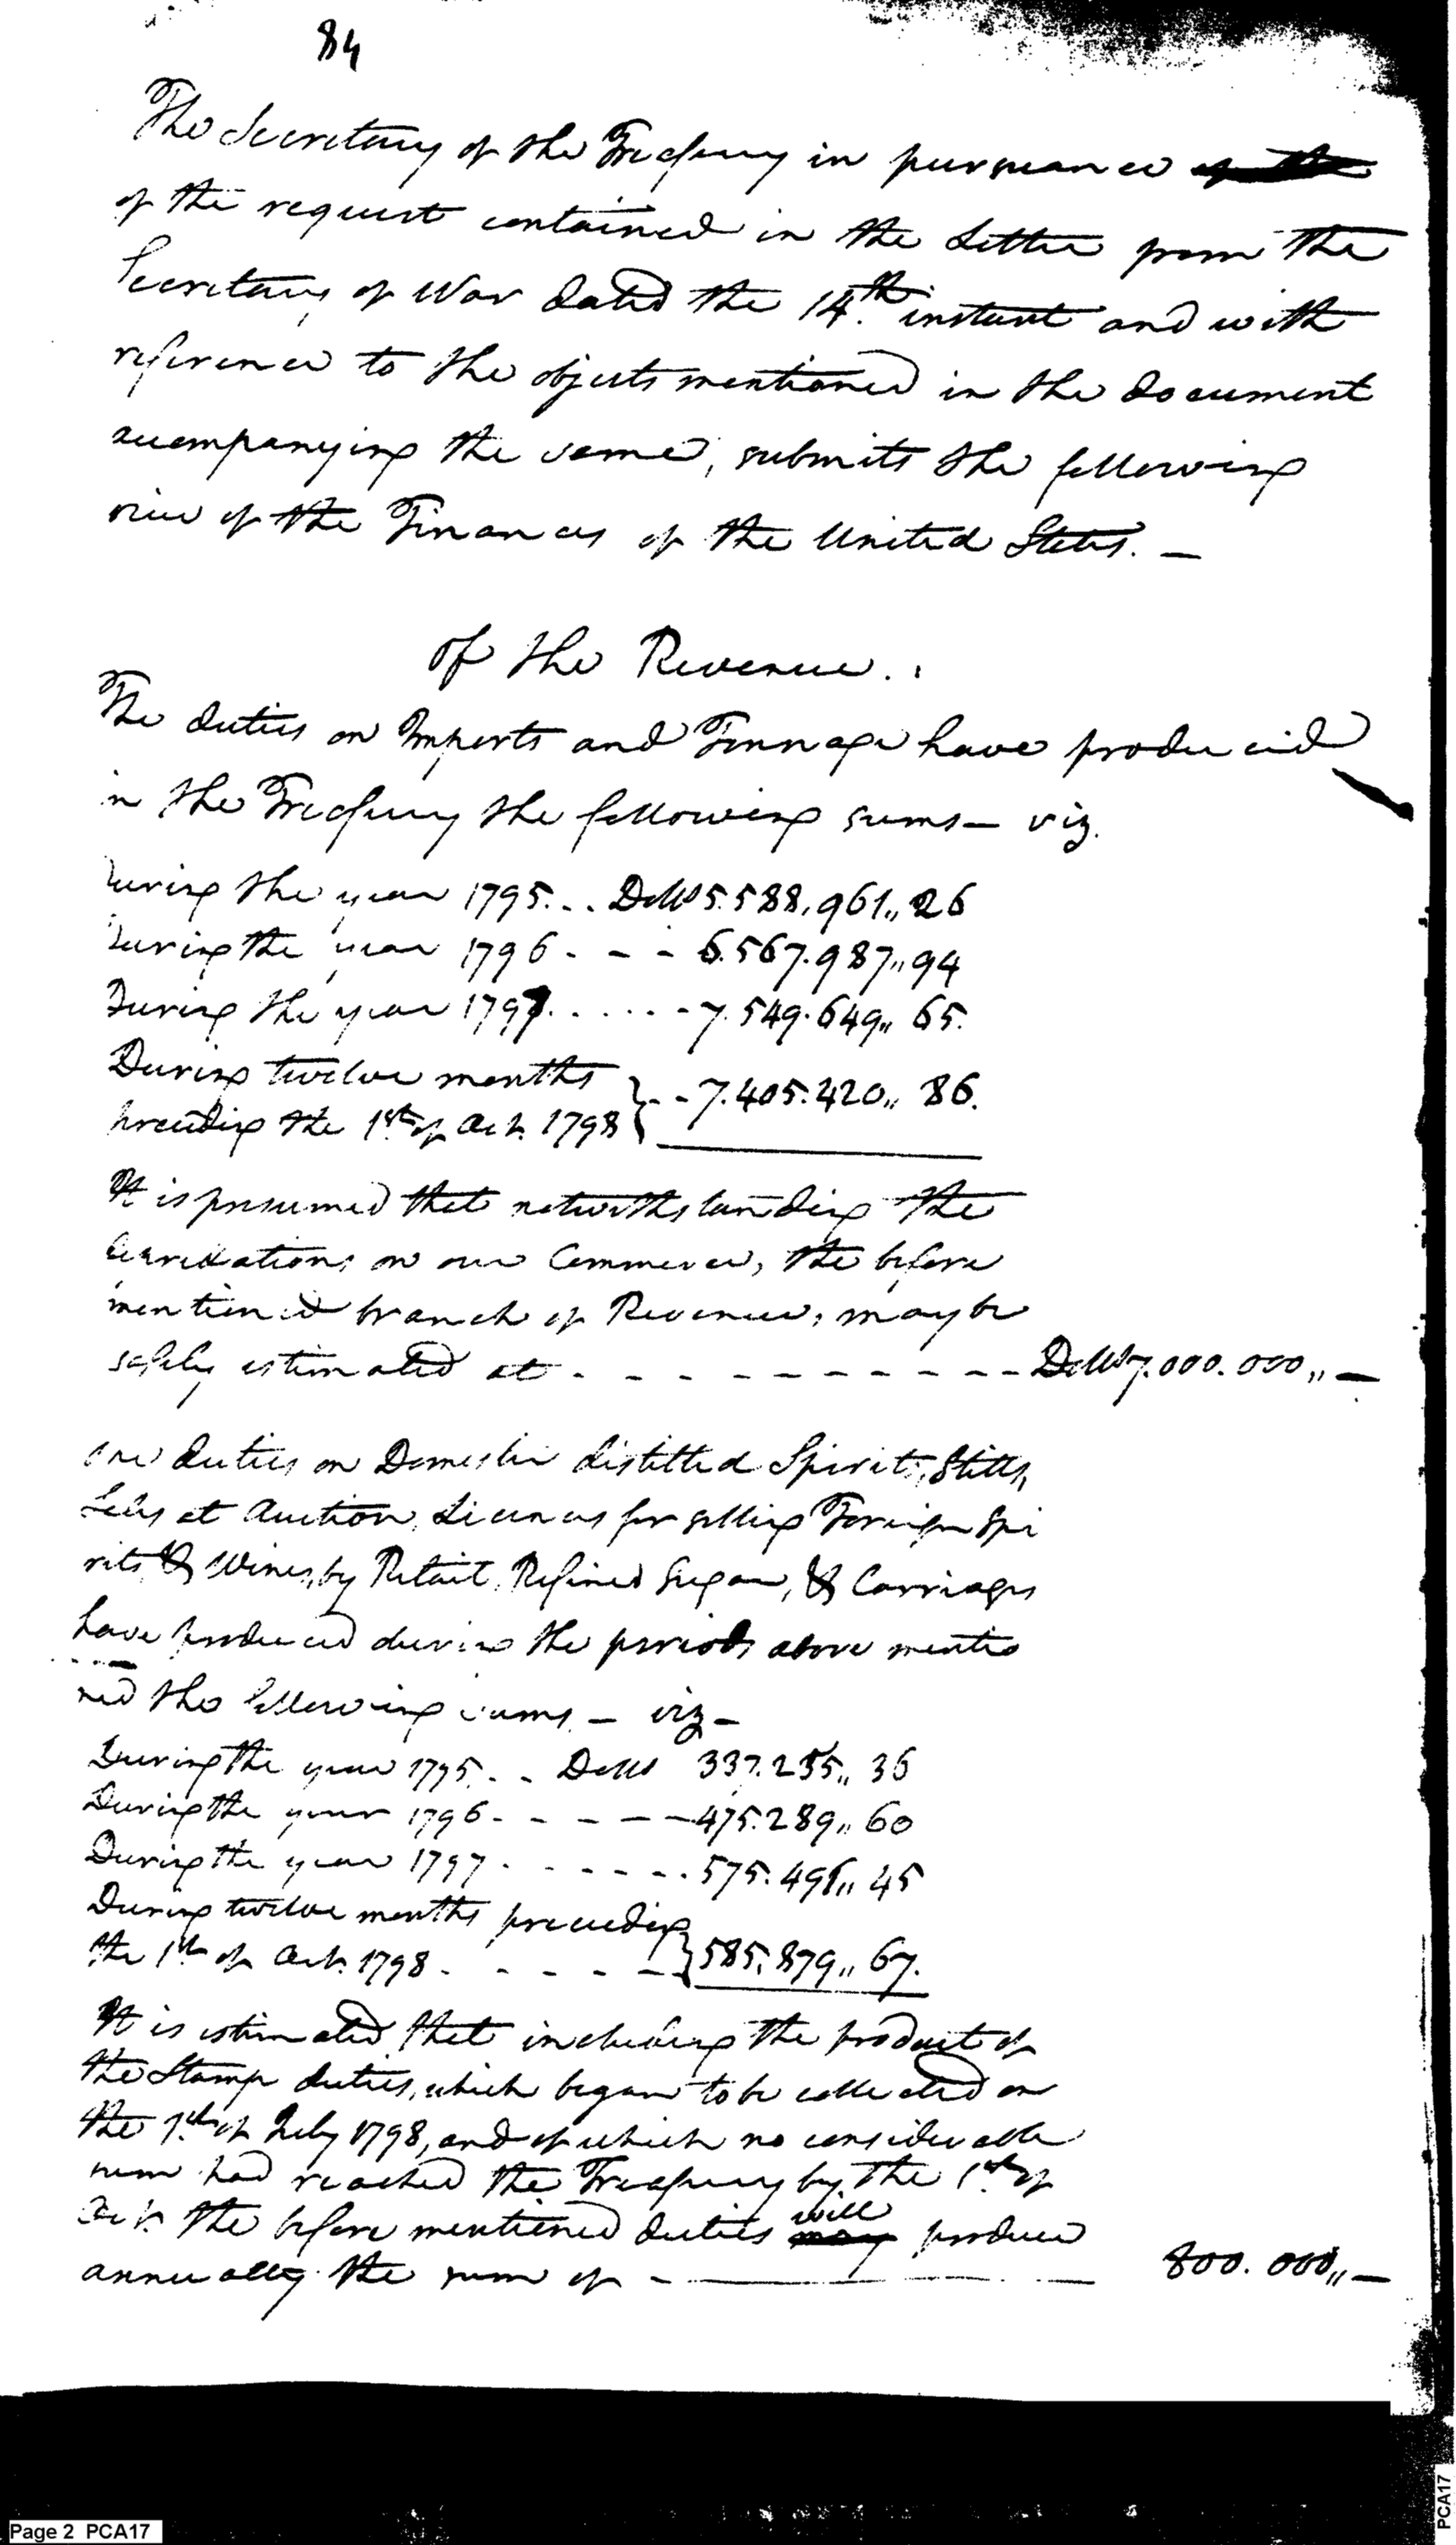 84
The Secretary of the Treasury in pursuance of the
of the request contained in the Letter from the
Secretary of War dated the 14th instant and with
reference to the objects mentioned in the document
accompanying the same, submits the following
view of the Finances of the United States. —
Of the Revenue.
The duties on Imports and Tonnage have produced
in the Treasury the following sums — viz.
During the year 1795... Dolls 5.588,961,, 26
During the year 1796 - - - 6.567.987,, 94
During the year 1797. . . . . - 7.549.649,, 65.
During twelve months
preceding the 1st of Oct. 1798 } - - 7.405.420,, 86.
It is presumed that notwithstanding the
depredations on our Commerce, the before
mentioned branch of Revenue, may be
safely estimated at - - - - - - - - - - Dolls 7.000.000,, —
The duties on Domestic distilled Spirits, Stills,
Sales at Auction, Licences for selling Foreign Spi
rits & Wines, by Retail, Refined Sugar, & Carriages
have produced during the periods above mentio
ned the following sums — viz —
During the year 1795. . - Dolls 337.255,, 36
During the year 1796 - - - - - 475.289,, 60
During the year 1797 . - - - - . 575.491,, 45
During twelve months preceding
the 1st of Oct. 1798 - - - - - } 585.879,, 67.
It is estimated that including the product of
the Stamp duties, which began to be collected on
the 1st of July 1798, and of which no considerable
sum had reached the Treasury by the 1st of
Oct. the before mentioned duties may will produce
annually the sum of - — — — 800.000,, —
Page 2 PCA17
PCA17